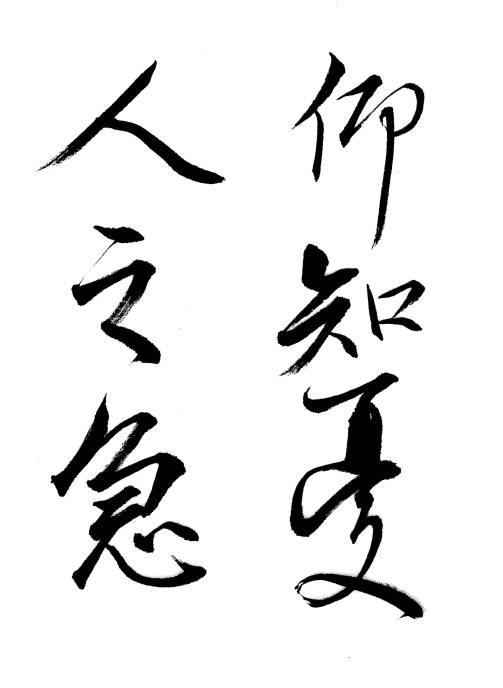 仰知憂
人之急